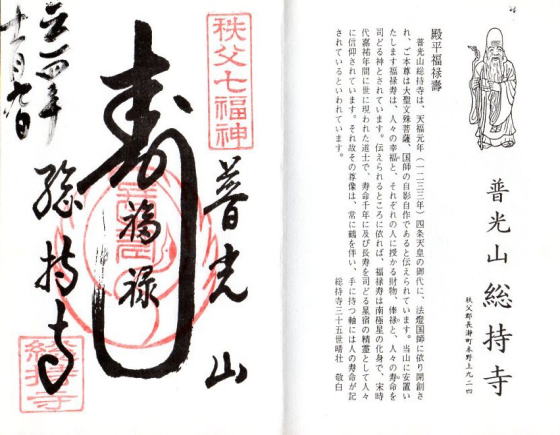 普光山総持寺
秩父郡長瀞町本野上九二四
殿平福禄壽
普光山総持寺は、天福元年（一二三三年）四条天皇の御代に、法燈国師に依り開創さ
れ、ご本尊は大聖文殊菩薩、国師の自影自作であると伝えられています。当山に安置い
たします福禄寿は、人々の幸福と、それぞれの人に授かる財物、俸禄と、人々の寿命を
司どる神とされています。伝えられるところに依れば、福禄寿は南極星の化身で、宋時
代嘉祐年間に世に現われた道士で、寿命千年に及び長寿を司どる星宿の精霊として人々
に信仰されています。それ故その尊像は、常に鶴を伴い、手に持つ軸には人の寿命が記
されているといわれています。
総持寺三十五世晴壮　敬白
秩父七福神
普光山
福禄
寿
総持寺
総持寺